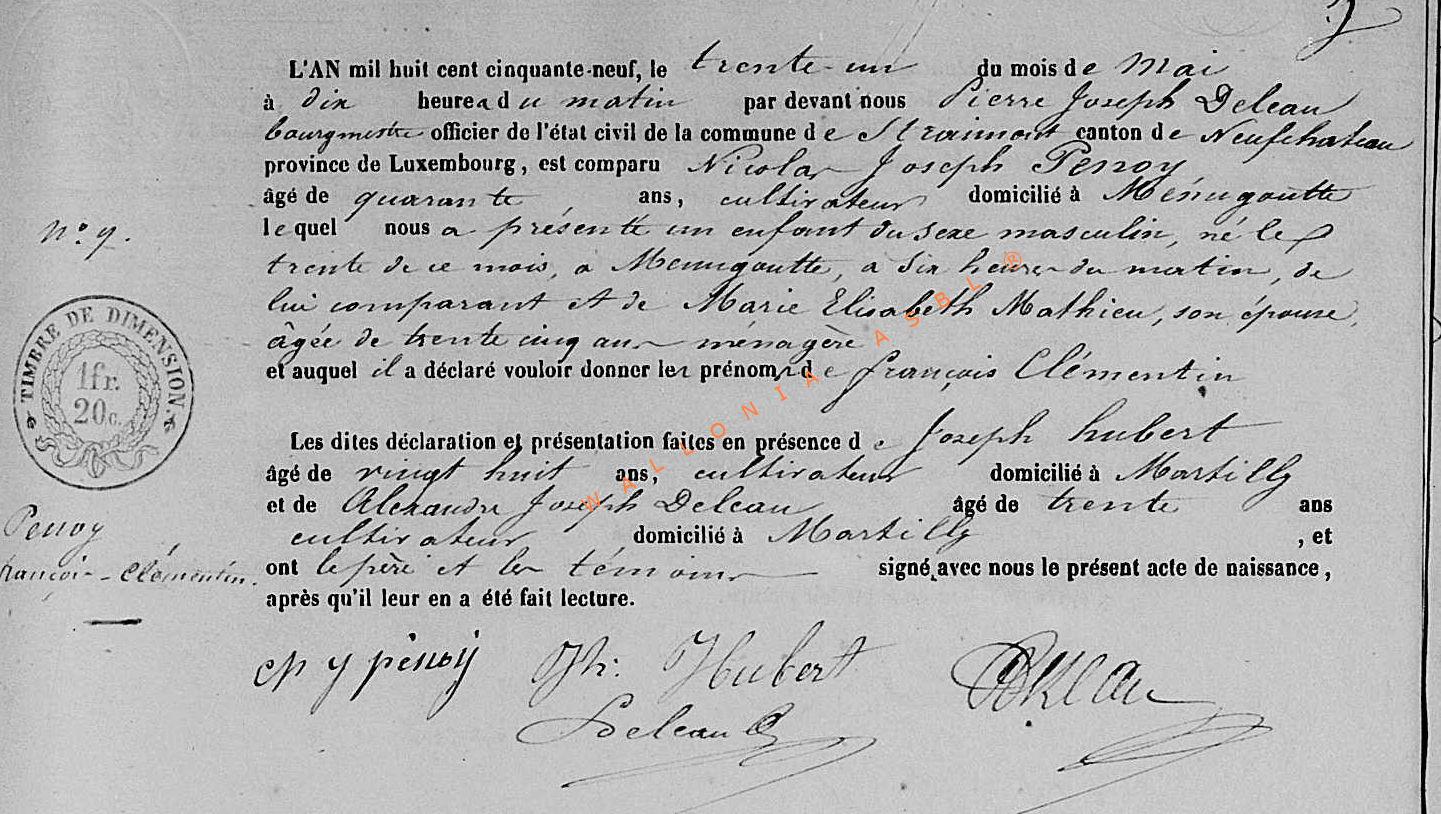 L'AN mil huit cent cinquante-neuf, le trente-un du mois de Mai
à dix heures du matin par devant nous Pierre Joseph Deleau
bourgmestre officier de l'état civil de la commune de Straimont canton de Neufchateau
province de Luxembourg, est comparu Nicolas Joseph Penoy
âgé de quarante ans, cultivateur domicilié à Menugoutte
lequel nous a présenté un enfant du sexe masculin, né le
trente de ce mois, à Menugoutte, à six heures du matin, de
lui comparant et de Marie Elisabeth Mathieu, son épouse,
âgée de trente cinq ans ménagère
et auquel il a déclaré vouloir donner les prénoms de françois Clémentin
Les dites déclaration et présentation faites en présence de Joseph hubert
âgé de vingt huit ans, cultivateur domicilié à Martilly
et de Alexandre Joseph Deleau âgé de trente ans
cultivateur domicilié à Martilly , et
ont le père et les témoins signé avec nous le présent acte de naissance,
après qu'il leur en a été fait lecture.
n° 9.
TIMBRE DE DIMENSION.
1fr.
20c.
Penoy
françois-Clémentin.
penoy Jh: Hubert
Deleau
WALLONIA ASBL ®